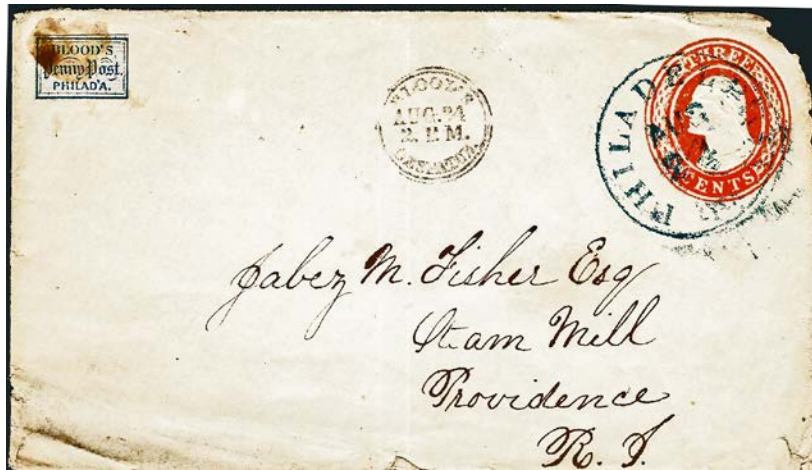 BLOOD'S
Penny Post.
PHILAD'A.
BLOOD'S
AUG. 24
2. P.M.
DESPATCH.
PHILADELPHIA
AUG
THREE
CENTS
Jabez M. Fisher Esq
Steam Mill
Providence
R. I.